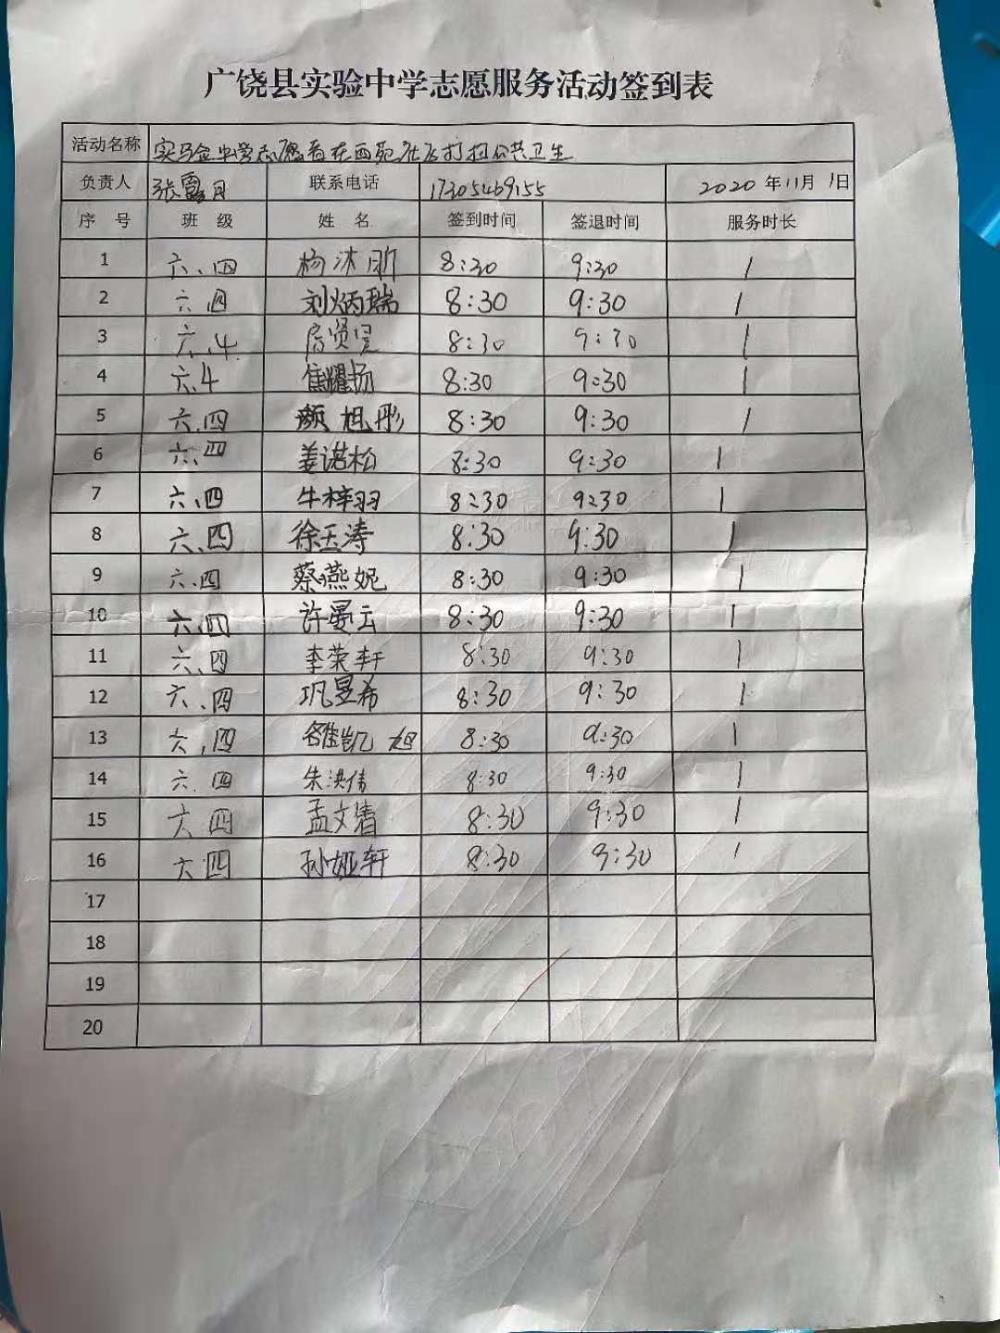 广饶县实验中学志愿服务活动签到表
活动名称 实验中学志愿者在西苑社区打扫公共卫生
负责人 张露月 联系电话 17305469155 2020年11月1日
序号 班级 姓名 签到时间 签退时间 服务时长
1 六、四 杨沐昕 8:30 9:30 1
2 六、四 刘炳瑞 8:30 9:30 1
3 六、4 8:30 9:30 1
4 六.4 焦耀扬 8:30 9:30 1
5 六.四 颜旭彤 8:30 9:30 1
6 六、四 姜诺松 8:30 9:30 1
7 六、四 牛梓羽 8:30 9:30 1
8 六、四 徐玉涛 8:30 9:30 1
9 六、四 蔡燕妮 8:30 9:30 1
10 六、四 许晏云 8:30 9:30 1
11 六、四 李荣轩 8:30 9:30 1
12 六、四 巩昱希 8:30 9:30 1
13 六,四 8:30 9:30 1
14 六.四 朱洪伟 8:30 9:30 1
15 六四 孟文清 8:30 9:30 1
16 六四 孙娅轩 8:30 9:30 1
17
18
19
20